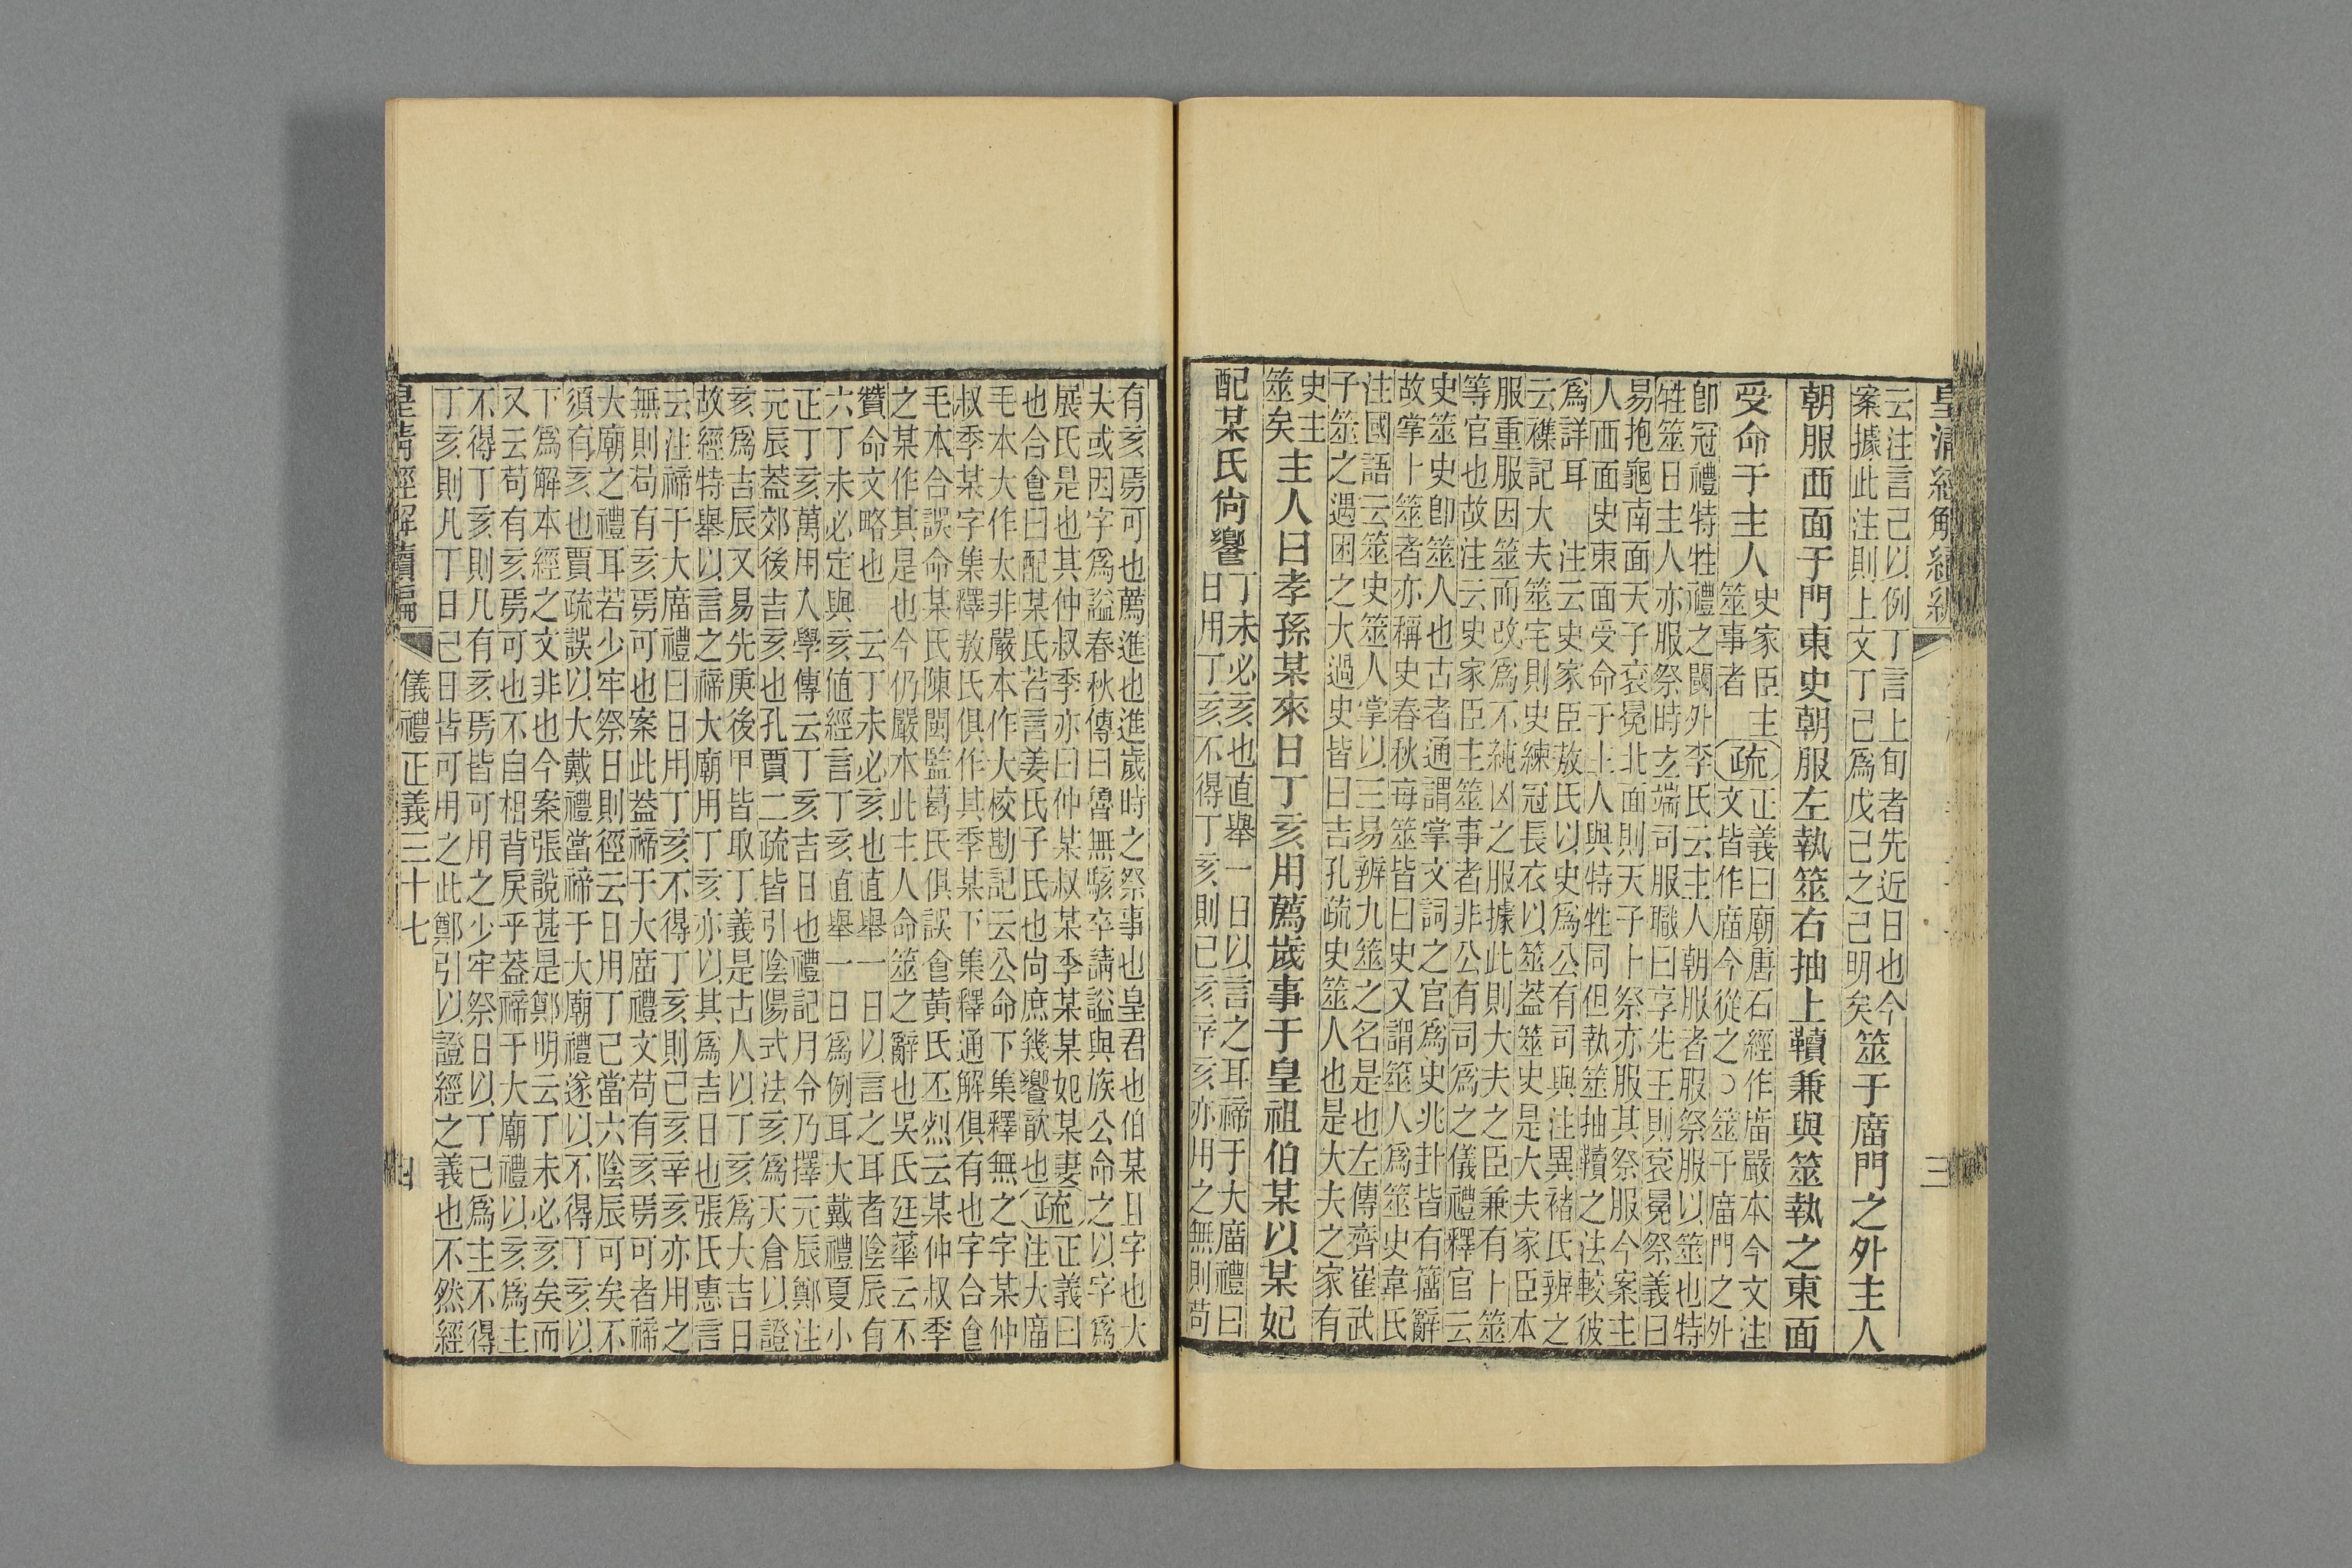 皇清經解續編
三
云注言己以例丁言上旬者先近日也今
案據此注則上文丁己爲戊己之己明矣
筮于庿門之外主人
朝服西面于門東史朝服左執筮右抽上韇兼與筮執之東面
受命于主人
史家臣主
筮事者
疏
正義曰廟唐石經作庿嚴本今文注
文皆作庿今從之○筮于庿門之外
卽冠禮特牲禮之闑外李氏云主人朝服者服祭服以筮也特
牲筮日主人亦服祭時玄端司服職曰享先王則袞冕祭義曰
易抱龜南面天子袞冕北面則天子卜祭亦服其祭服今案主
人西面史東面受命于主人與特牲同但執筮抽韇之法較彼
爲詳耳　注云史家臣敖氏以史爲公有司與注異褚氏辨之
云襍記大夫筮宅則史練冠長衣以筮葢筮史是大夫家臣本
服重服因筮而改爲不純凶之服據此則大夫之臣兼有卜筮
等官也故注云史家臣主筮事者非公有司爲之儀禮釋官云
史筮史卽筮人也古者通謂掌文詞之官爲史兆卦皆有籀辭
故掌卜筮者亦稱史春秋每筮皆曰史又謂筮人爲筮史韋氏
注國語云筮史筮人掌以三易辨九筮之名是也左傳齊崔武
子筮之遇困之大過史皆曰吉孔疏史筮人也是大夫之家有
史主
筮矣
主人曰孝孫某來日丁亥用薦歲事于皇祖伯某以某妃
配某氏尙饗
丁未必亥也直舉一日以言之耳禘于大庿禮曰
日用丁亥不得丁亥則己亥辛亥亦用之無則苟
有亥焉可也薦進也進歲時之祭事也皇君也伯某且字也大
夫或因字爲謚春秋傳曰魯無駭卒請謚與族公命之以字爲
展氏是也其仲叔季亦曰仲某叔某季某某妃某妻
也合食曰配某氏若言姜氏子氏也尙庶幾饗歆也
疏
正義曰
注大庿
毛本大作太非嚴本作大校勘記云公命下集釋無之字某仲
叔季某字集釋敖氏俱作其季某下集釋通解俱有也字合食
毛本合誤命某氏陳閩監葛氏俱誤食黃氏丕烈云某仲叔季
之某作其是也今仍嚴本此主人命筮之辭也吳氏廷華云不
贊命文略也　云丁未必亥也直舉一日以言之耳者陰辰有
六丁未必定與亥値經言丁亥直舉一日爲例耳大戴禮夏小
正丁亥萬用入學傳云丁亥吉日也禮記月令乃擇元辰鄭注
元辰葢郊後吉亥也孔賈二疏皆引陰陽式法亥爲天倉以證
亥爲吉辰又易先庚後甲皆取丁義是古人以丁亥爲大吉日
故經特舉以言之禘大廟用丁亥亦以其爲吉日也張氏惠言
云注禘于大庿禮曰日用丁亥不得丁亥則己亥辛亥亦用之
無則苟有亥焉可也案此葢禘于大庿禮文苟有亥焉可者禘
大廟之禮耳若少牢祭日則徑云日用丁己當六陰辰可矣不
須有亥也賈疏誤以大戴禮當禘于大廟禮遂以不得丁亥以
下爲解本經之文非也今案張說甚是鄭明云丁未必亥矣而
又云苟有亥焉可也不自相背戾乎葢禘于大廟禮以亥爲主
不得丁亥則凡有亥焉皆可用之少牢祭日以丁己爲主不得
丁亥則凡丁日己日皆可用之此鄭引以證經之義也不然經
皇清經解續編
儀禮正義三十七
四